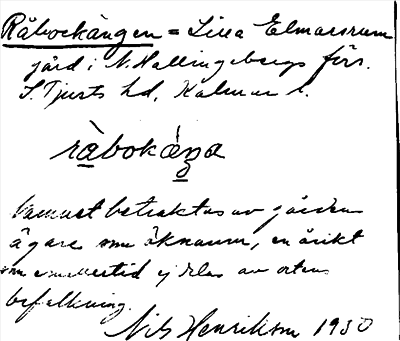 Råbockängen = Lilla Elmarsrum
gård i N. Hallingebergs förs.
S. Tjusts hd, Kalmar l.
ràbokáŋa
Namnet betraktas av gårdens
ägare som öknamn, en åsikt
som emellertid ej delas av ortens
befolkning.
Nils Henrikson 1930